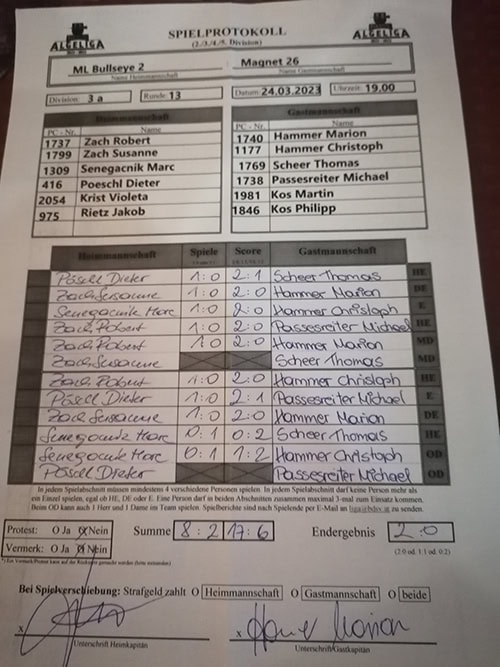 ALGELIGA
SPIELPROTOKOLL
(2./3./4./5. Division)
ALGELIGA
ML Bullseye 2 Magnet 26
Name Heimmannschaft Name Gastmannschaft
Division: 3 a Runde: 13 Datum: 24.03.2023 Uhrzeit: 19.00
Heimmannschaft Gastmannschaft
PC - Nr. Name PC - Nr. Name
1737 Zach Robert 1740 Hammer Marion
1799 Zach Susanne 1177 Hammer Christoph
1309 Senegacnik Marc 1769 Scheer Thomas
416 Poeschl Dieter 1738 Passesreiter Michael
2054 Krist Violeta 1981 Kos Martin
975 Rietz Jakob 1846 Kos Philipp
Heimmannschaft Spiele Score Gastmannschaft
Pöschl Dieter 1:0 2:1 Scheer Thomas HE
Zach Susanne 1:0 2:0 Hammer Marion DE
Senegacnik Marc 1:0 2:0 Hammer Christoph E
Zach Robert 1:0 2:0 Passesreiter Michael HE
Zach Robert 1:0 2:0 Hammer Marion MD
Zach Susanne Scheer Thomas MD
Zach Robert 1:0 2:0 Hammer Christoph HE
Pöschl Dieter 1:0 2:1 Passesreiter Michael E
Zach Susanne 1:0 2:0 Hammer Marion DE
Senegacnik Marc 0:1 0:2 Scheer Thomas HE
Senegacnik Marc 0:1 1:2 Hammer Christoph OD
Pöschl Dieter Passesreiter Michael OD
In jedem Spielabschnitt müssen mindestens 4 verschiedene Personen spielen. In jedem Spielabschnitt darf keine Person mehr als
ein Einzel spielen, egal ob HE, DE oder E. Eine Person darf in beiden Abschnitten zusammen maximal 3-mal zum Einsatz kommen.
Beim OD kann auch 1 Herr und 1 Dame im Team spielen. Spielberichte sind nach Spielende per E-Mail an liga@bdsv.at zu senden.
Protest: O Ja O Nein Summe 8:2 17:6 Endergebnis 2:0
Vermerk: O Ja O Nein (2:0 od. 1:1 od. 0:2)
Bei Spielverschiebung: Strafgeld zahlt O Heimmannschaft O Gastmannschaft O beide
x x Hammer Marion
Unterschrift Heimkapitän Unterschrift Gastkapitän